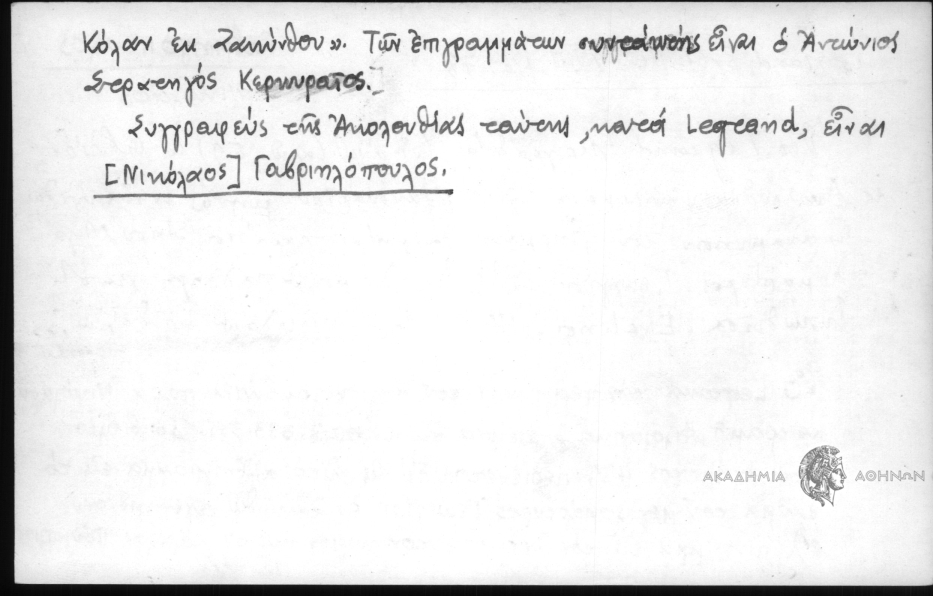 Κόλαν ἐκ Ζακύνθου». Τῶν ἐπιγραμμάτων συγγραφεὺς εἶναι ὁ Ἀντώνιος
Στρατηγός Κερκυραῖος.
Συγγραφεύς τῆς Ἀκολουθίας ταύτης, κατά Legrand, εἶναι
[Νικόλαος] Γαβριηλόπουλος.
ΑΚΑΔΗΜΙΑ ΑΘΗΝΩΝ